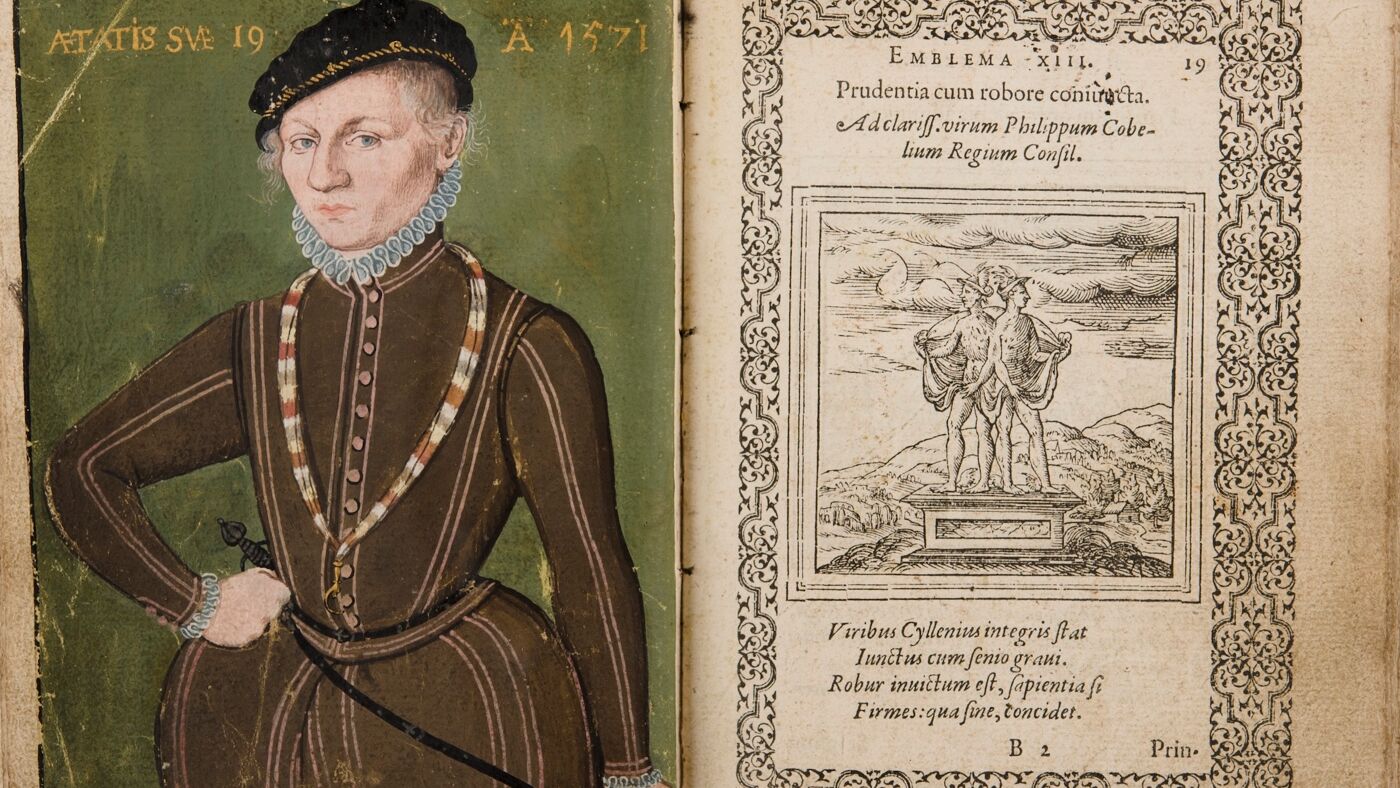 ÆTATIS SVÆ 19
A 1571
EMBLEMA XIII. 19
Prudentia cum robore coniuncta.
Ad clariſſ. virum Philippum Cobe-
lium Regium Conſil.
Viribus Cyllenius integris ſtat
Iunctus cum ſenio graui.
Robur inuictum eſt, ſapientia ſi
Firmes: qua ſine, concidet.
B 2 Prin-